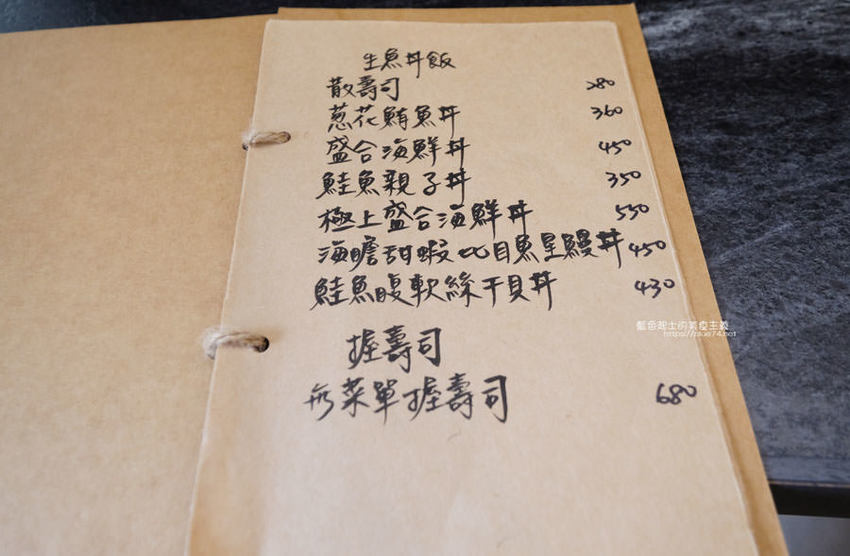 生魚丼飯
散壽司 280
葱花鮪魚丼 360
盛合海鮮丼 450
鮭魚親子丼 350
極上盛合海鮮丼 550
海膽甜蝦比目魚星鰻丼 450
鮭魚腹軟絲干貝丼 430
握壽司
無菜單握壽司 680
藍色起士的美食主義
https://blue74.net